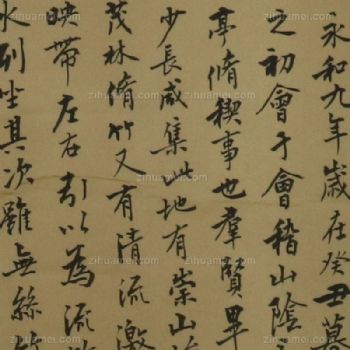 永和九年歲在癸丑暮
之初會于會稽山陰
亭脩稧事也羣賢畢
少長咸集此地有崇山
茂林脩竹又有清流激
映帶左右引以為流
水列坐其次雖無絲
zihuamei.com
zihuamei.com
zihuamei.com
zihuamei.com